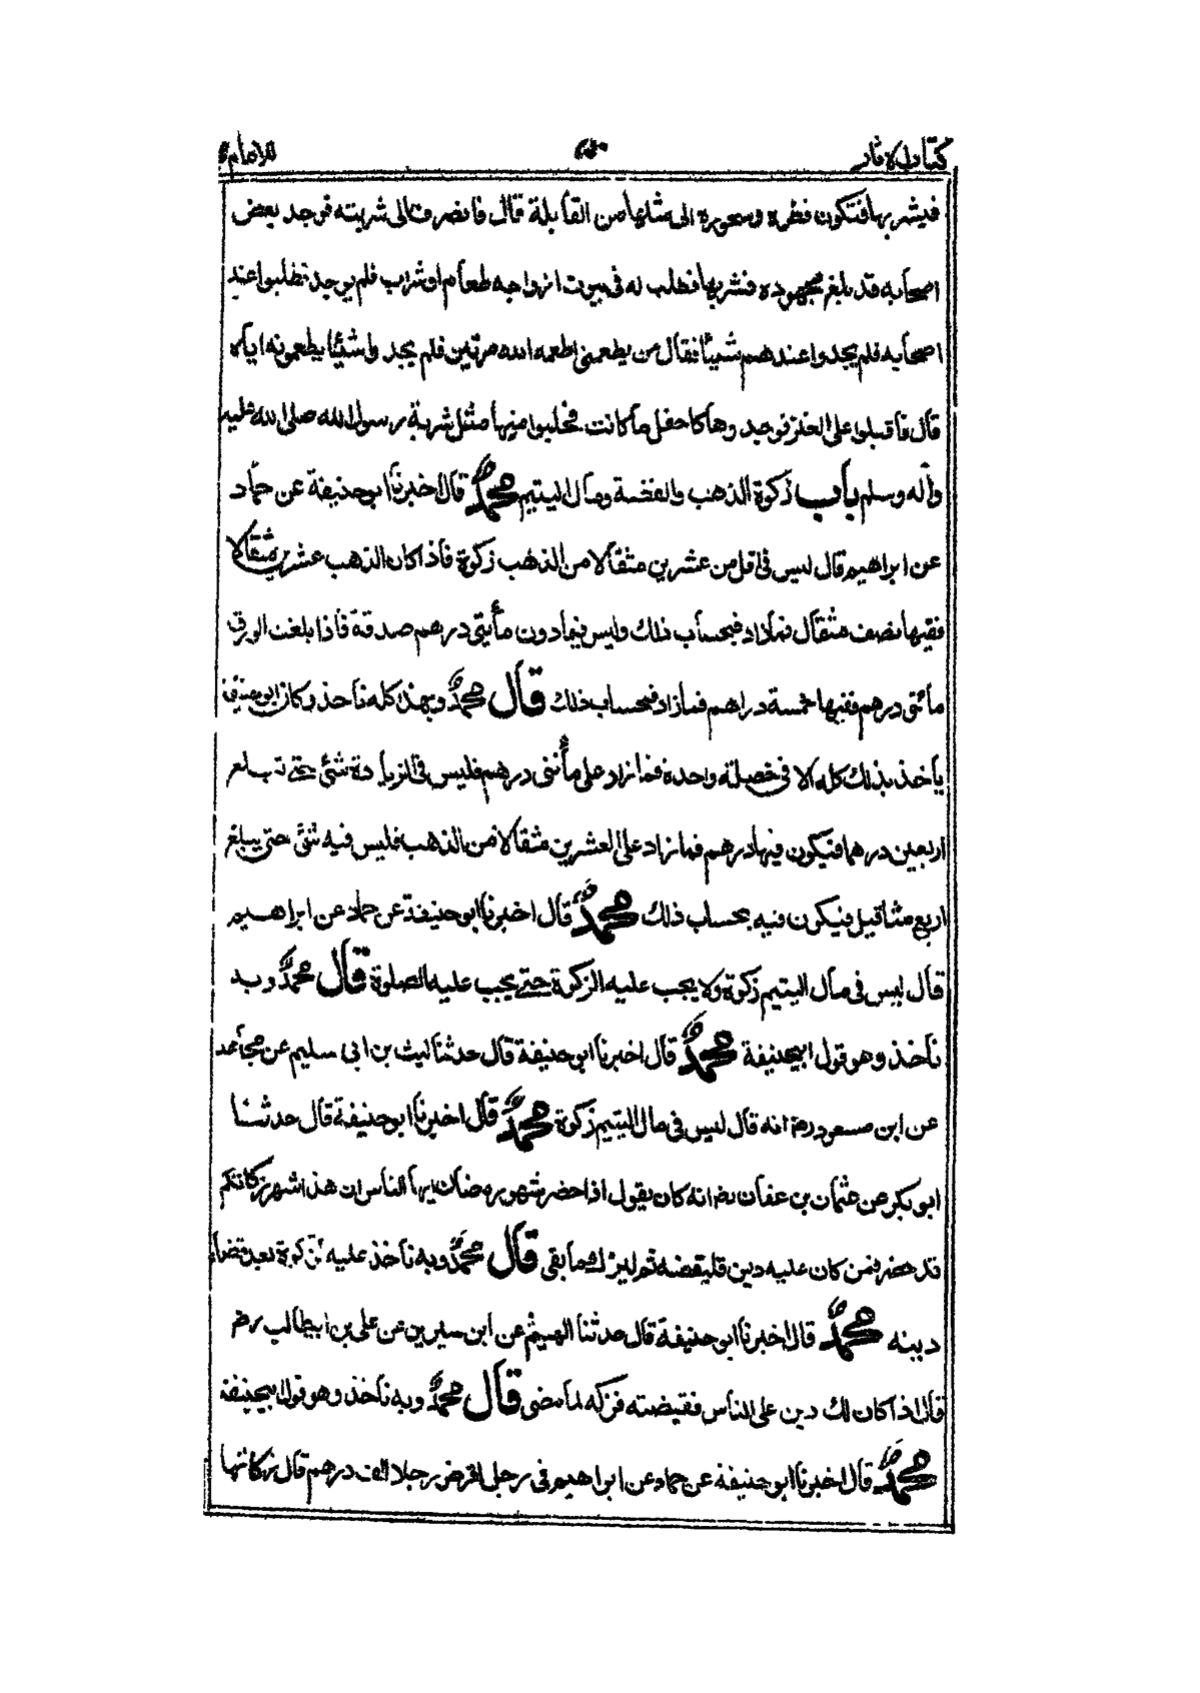 كتاب الآثار
للامام
فيشربها فتكون فطره وسحوره الى مثلها من القابلة قال فانصرف الى شربته فوجد بعض
اصحابه قد بلغ مجهوده فشربها فطلب له فى بيوت ازواجه طعام او شراب فلم يوجد فطلبوا عند
اصحابه فلم يجدوا عندهم شيئا فقال من يطعمنى اطعمه الله مرتين فلم يجدوا شيئا يطعمونه اياه
قال فاقبلوا على العنز فوجدوها كاحفل ما كانت فحلبوا منها مثل شربة رسول الله صلى الله عليه
وآله وسلم باب زكوة الذهب والفضة ومال اليتيم محمد قال اخبرنا ابو حنيفة عن حماد
عن ابراهيم قال ليس فى اقل من عشرين مثقالا من الذهب زكوة فاذا كان الذهب عشرين مثقالا
ففيها نصف مثقال فما زاد فبحساب ذلك وليس فيما دون مأيتى درهم صدقة فاذا بلغت الورق
مأتى درهم ففيها خمسة دراهم فما زاد فبحساب ذلك قال محمد وبهذا كله نأخذ وكان ابو حنيفة
يأخذ بذلك كله الا فى خصلة واحدة فما زاد على مأتى درهم فليس فى الزيادة شئ حتى تبلغ
اربعين درهما فيكون فيها درهم فما زاد على العشرين مثقالا من الذهب فليس فيه شئ حتى يبلغ
اربع مثاقيل فيكون فيه بحساب ذلك محمد قال اخبرنا ابو حنيفة عن حماد عن ابراهيم
قال ليس فى مال اليتيم زكوة ولا يجب عليه الزكوة حتى يجب عليه الصلوة قال محمد وبه
نأخذ وهو قول ابيحنيفة محمد قال اخبرنا ابو حنيفة قال حدثنا ليث بن ابى سليم عن مجاهد
عن ابن مسعود رض انه قال ليس فى مال اليتيم زكوة محمد قال اخبرنا ابو حنيفة قال حدثنا
ابو بكر عن عثمان بن عفان رض انه كان يقول اذا حضر شهر رمضان ايها الناس ان هذا شهر زكاتكم
قد حضر فمن كان عليه دين فليقضه ثم ليزك ما بقى قال محمد وبه نأخذ عليه زكوة بعد قضاء
دينه محمد قال اخبرنا ابو حنيفة قال حدثنا الهيثم عن ابن سيرين عن على بن ابيطالب رض
قال اذا كان لك دين على الناس فقبضته فزكه لما مضى قال محمد وبه نأخذ وهو قول ابيحنيفة
محمد قال اخبرنا ابو حنيفة عن حماد عن ابراهيم فى رجل اقرض رجلا الف درهم قال زكاتها